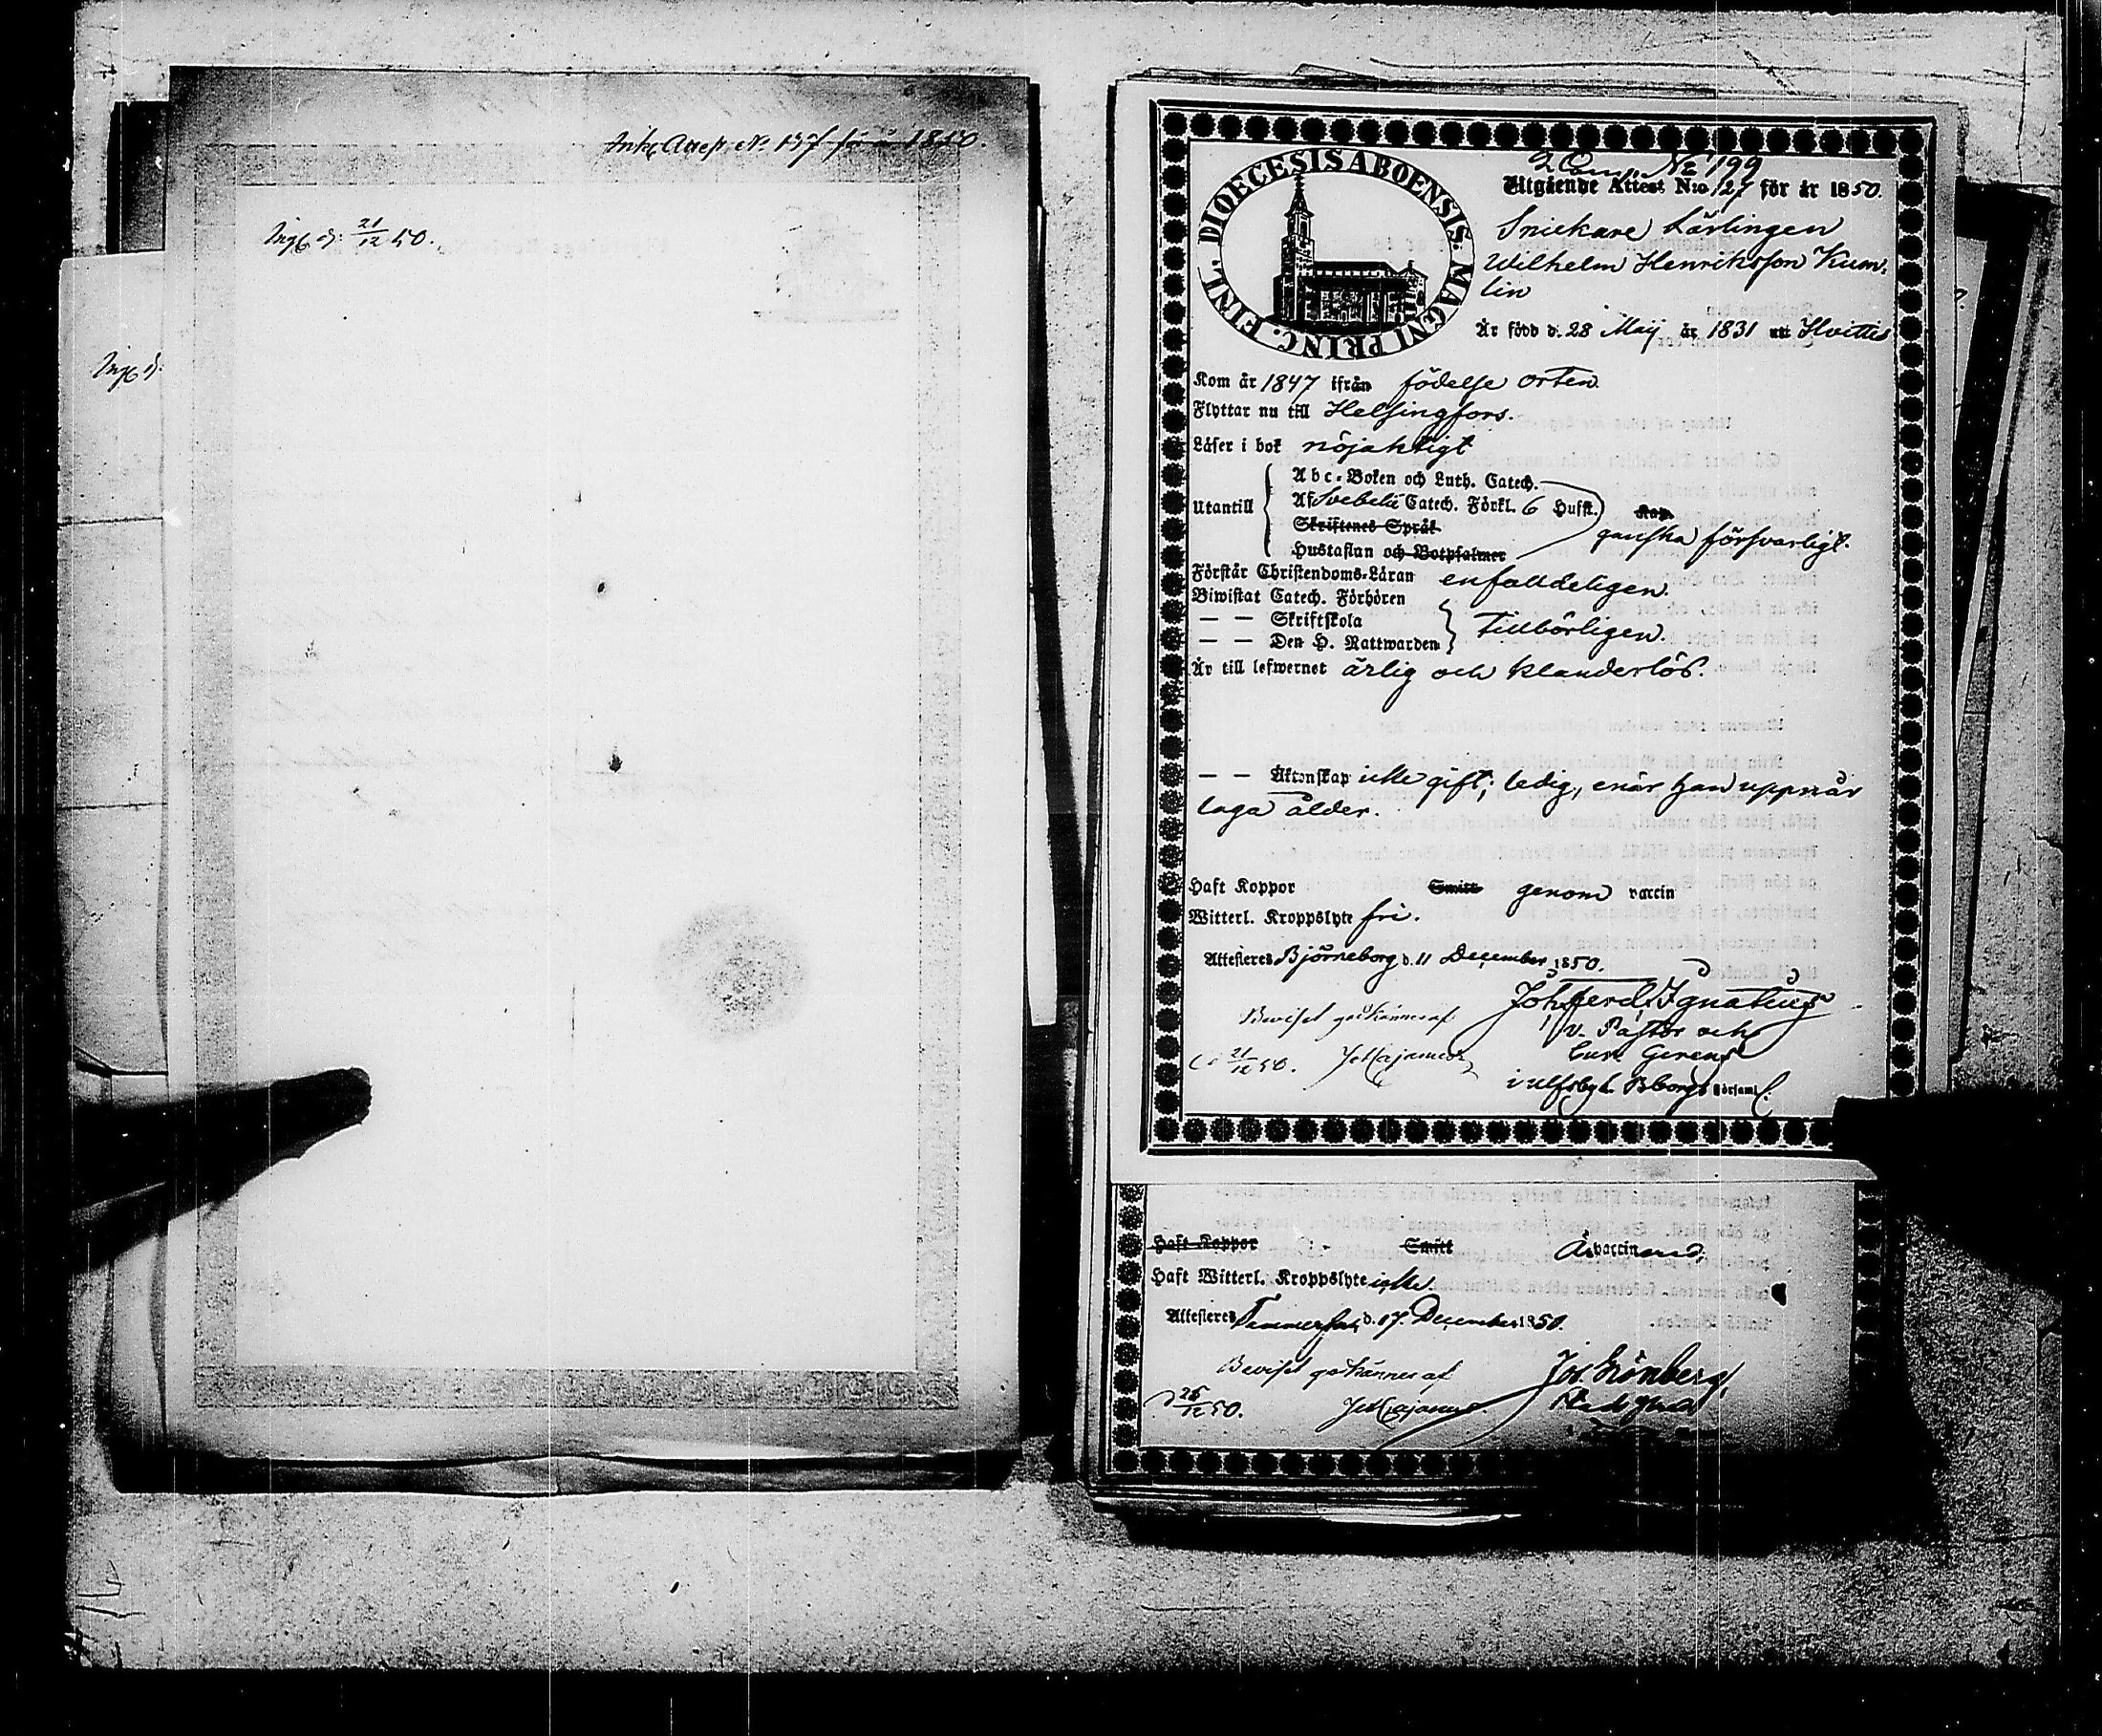 Ink. Attest No 137 för år 1850.
Ingf d. 21/12 50.
Ingf d.
DIOECESIS ABOENSIS. MAGNI PRINC. FINL.
No 199
Utgående Attest N:o 127 för år 1850.
Snickare Lärlingen
Wilhelm Henriksson Kum-
lin
Är född d. 28 Maij år 1831 uti Hvittis
Kom år 1847 ifrån födelse orten
Flyttar nu till Helsingfors.
Läser i bok nöjaktigt
Utantill
Abc-Boken och Luth. Catech.
Af Svebelii Catech. Förkl. 6 Hufst. Kap.
Skriftenes Språk
ganska försvarligt.
Hustaflan och Botpsalmer
Förstår Christendoms-Läran enfalldeligen.
Biwistat Catech. Förhören
— — Skriftskola
Tillbörligen.
— — Den H. Nattwarden
Är till lefwernet ärlig och klanderlös.
— — Äktenskap icke gift; ledig, enär han uppnår
laga ålder.
Haft Koppor Smitt genom vaccin
Witterl. Kroppslyte fri.
Attesteres Björneborg d. 11 December 1850.
Joh. Ferd. Ignatius
v. Pastor och
Beviset godkännes af
Cur. Gerens
d 21/12 50.
i Ulfsby l. Bborgs Församl.
Haft Koppor Smitt Är vaccinerad.
Haft Witterl. Kroppslyte icke.
Attesteres Tammerfors d. 17. December 1850.
Beviset godkännes af
Jos. Grönberg,
d 25/12 50.